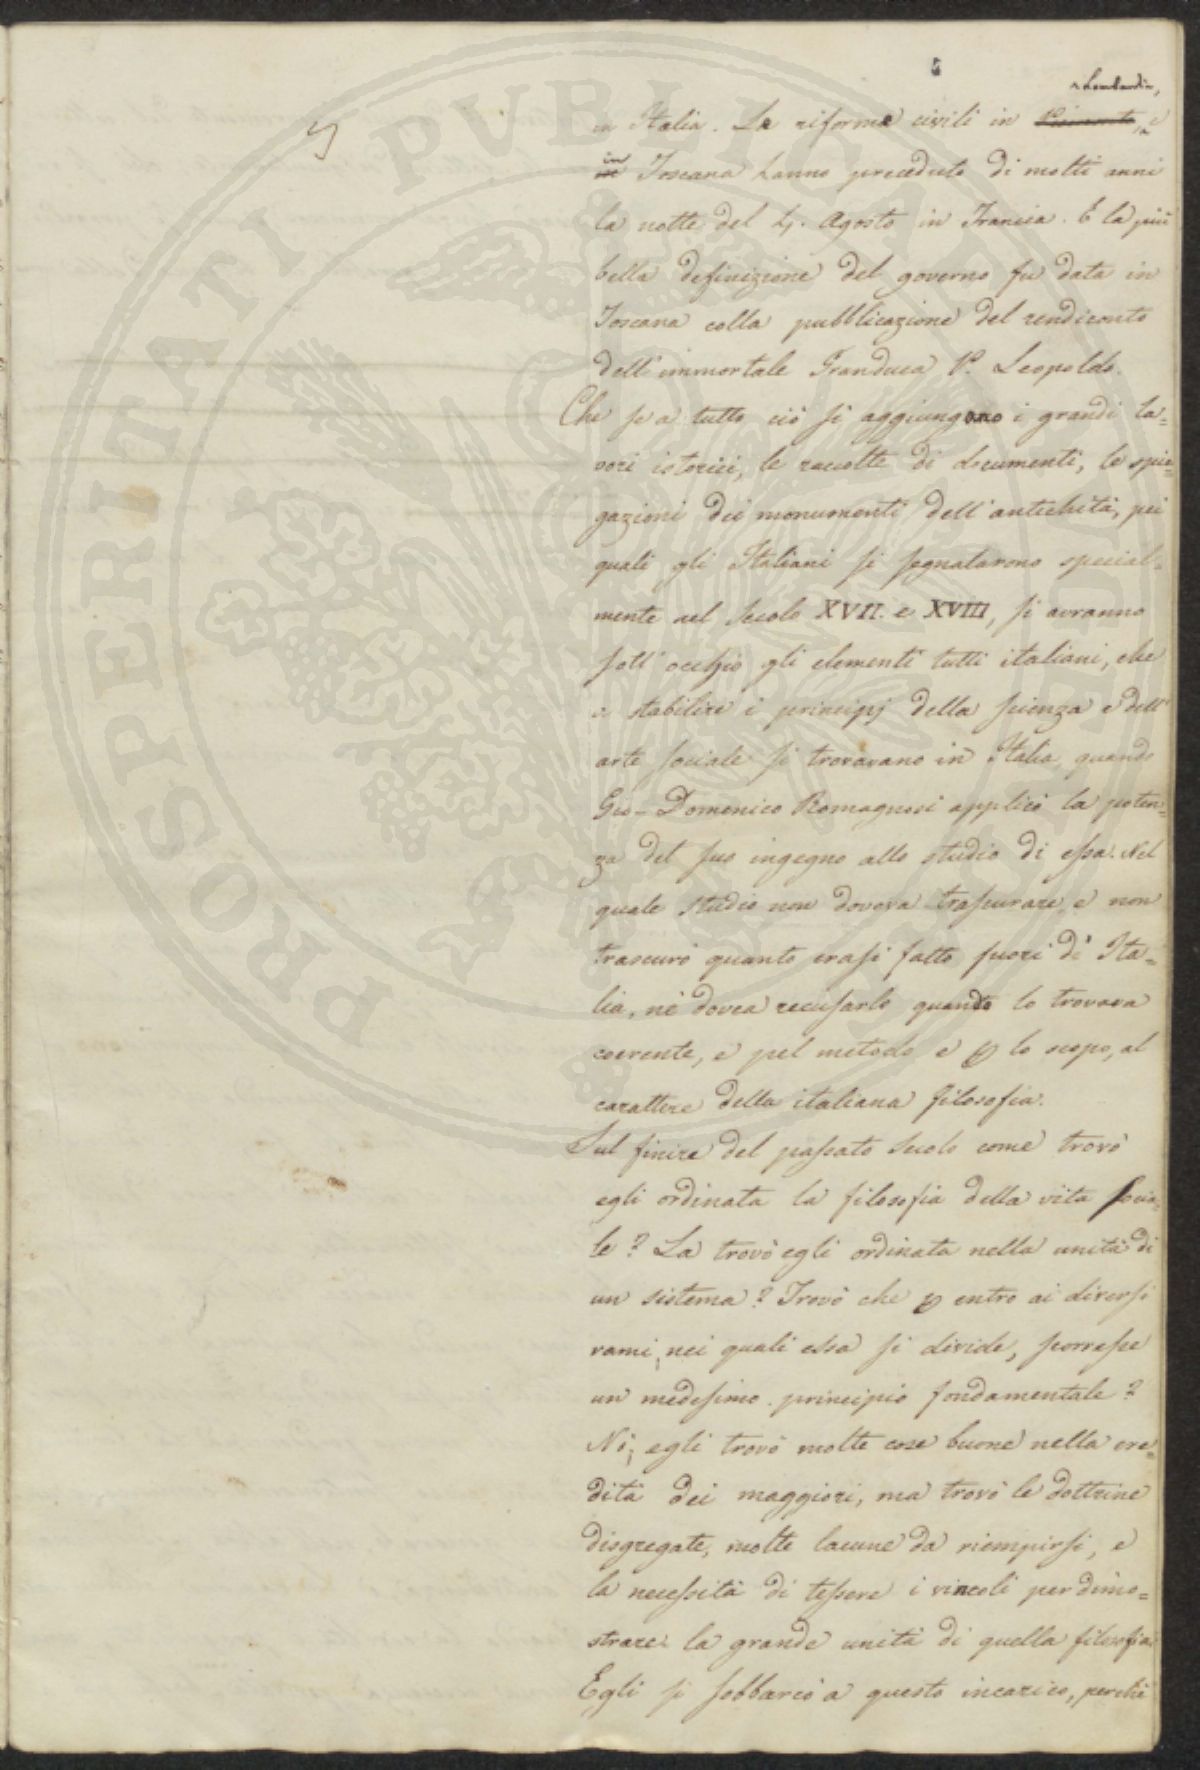 5
Lombardia,
in Italia. Le riforme civili in Piemonte, e
in Toscana hanno preceduto di molti anni
la notte del 4. Agosto in Francia. E la più
bella definizione del governo fu data in
Toscana colla pubblicazione del rendiconto
dell'immortale Granduca P. Leopoldo.
Che se a tutto ciò si aggiungono i grandi la=
vori istorici, le raccolte di documenti, le spie=
gazioni dei monumenti dell'antichità, pei
quali gli Italiani si segnalarono special=
mente nel secolo XVII. e XVIII, si avranno
sott'occhio gli elementi tutti italiani, che
a stabilire i principj della scienza e dell'
arte sociale si trovavano in Italia, quando
Gio-Domenico Romagnosi applicò la poten=
za del suo ingegno allo studio di essa. Nel
quale studio non doveva trascurare, e non
trascurò quanto erasi fatto fuori d'Ita=
lia, nè dovea recusarlo quando lo trovava
coerente, e pel metodo e p lo scopo, al
carattere della italiana filosofia.
Sul finire del passato secolo come trovò
egli ordinata la filosofia della vita socia=
le? La trovò egli ordinata nella unità di
un sistema? Trovò che p entro ai diversi
rami, nei quali essa si divide, scorresse
un medesimo principio fondamentale?
Nò; egli trovò molte cose buone nella ere=
dità dei maggiori, ma trovò le dottrine
disgregate, molte lacune da riempirsi, e
la necessità di tessere i vincoli per dimo=
strare la grande unità di quella filosofia.
Egli si sobbarcò a questo incarico, perchè
PROSPERITATI PUBLICAE